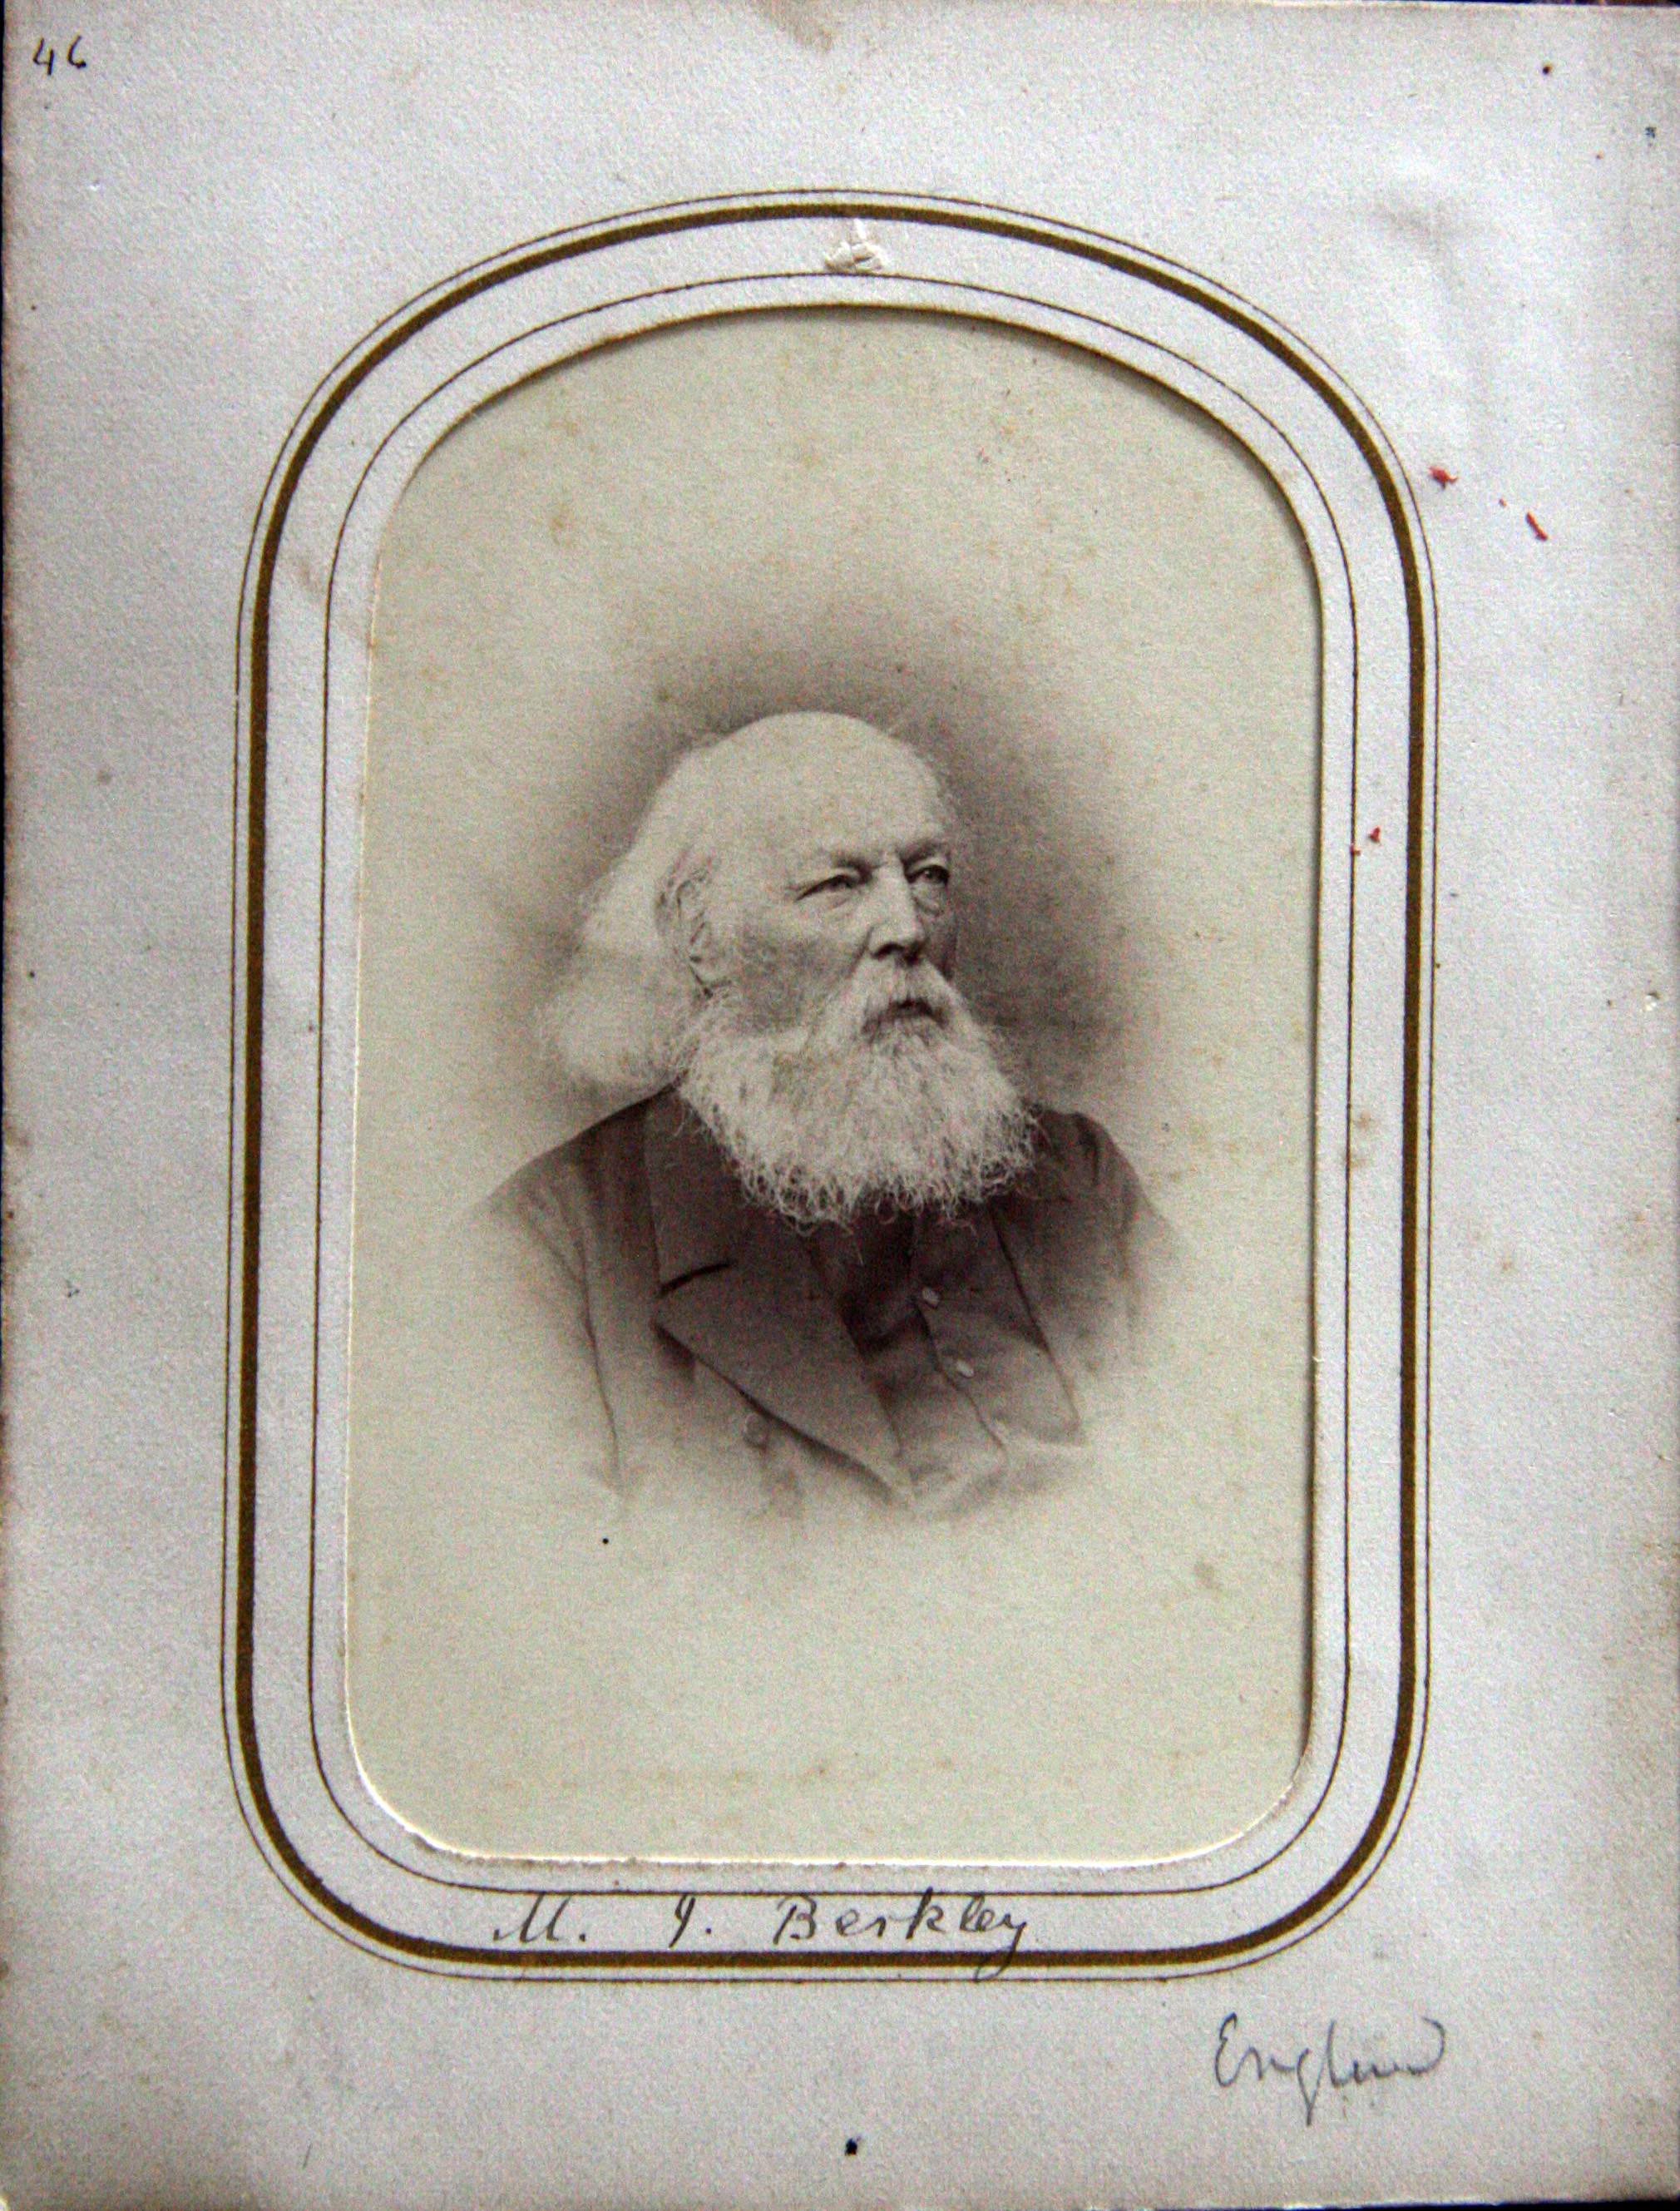 46
M. J. Berkley
England